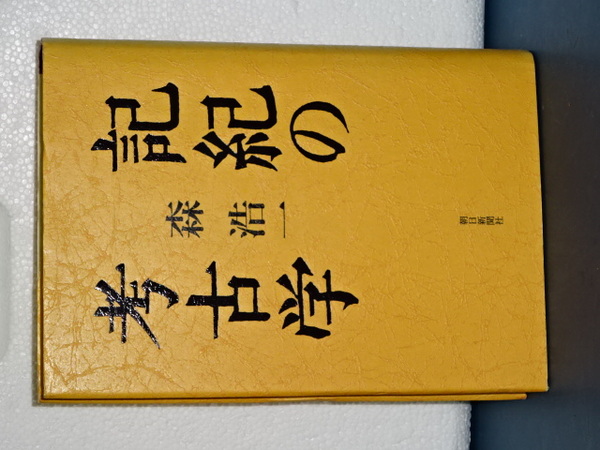 記紀の
考古学
森浩一
朝日新聞社